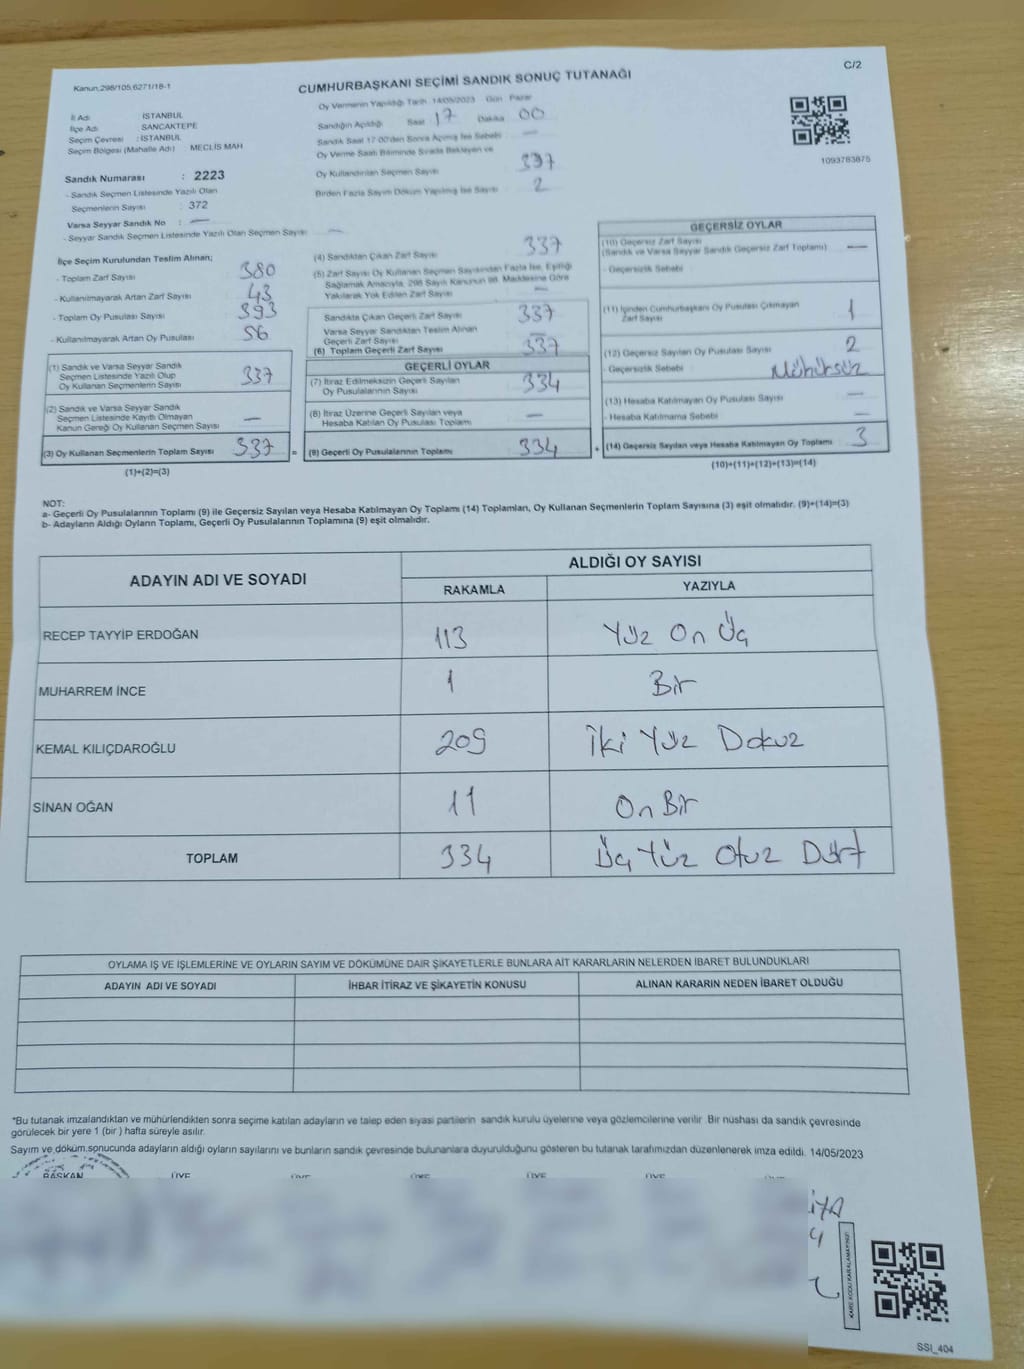 C/2
Kanun;298/105,6271/18-1
CUMHURBAŞKANI SEÇİMİ SANDIK SONUÇ TUTANAĞI
Oy Vermenin Yapıldığı Tarih 14/05/2023 Gün Pazar
İl Adı : İSTANBUL
İlçe Adı : SANCAKTEPE
Seçim Çevresi : İSTANBUL
Seçim Bölgesi (Mahalle Adı) : MECLİS MAH
Sandığın Açıldığı Saat 17 Dakika 00
Sandık Saat 17:00'den Sonra Açılmış İse Sebebi —
Oy Verme Saati Bitiminde Sırada Bekleyen ve
Oy Kullandırılan Seçmen Sayısı 337
Birden Fazla Sayım Döküm Yapılmış İse Sayısı 2
1093783875
Sandık Numarası : 2223
- Sandık Seçmen Listesinde Yazılı Olan
Seçmenlerin Sayısı : 372
Varsa Seyyar Sandık No : —
- Seyyar Sandık Seçmen Listesinde Yazılı Olan Seçmen Sayısı —
İlçe Seçim Kurulundan Teslim Alınan;
- Toplam Zarf Sayısı 380
- Kullanılmayarak Artan Zarf Sayısı 43
- Toplam Oy Pusulası Sayısı 393
- Kullanılmayarak Artan Oy Pusulası 56
(1) Sandık ve Varsa Seyyar Sandık
Seçmen Listesinde Yazılı Olup
Oy Kullanan Seçmenlerin Sayısı 337
(2) Sandık ve Varsa Seyyar Sandık
Seçmen Listesinde Kayıtlı Olmayan
Kanun Gereği Oy Kullanan Seçmen Sayısı —
(3) Oy Kullanan Seçmenlerin Toplam Sayısı 337 =
(1)+(2)=(3)
(4) Sandıktan Çıkan Zarf Sayısı 337
(5) Zarf Sayısı Oy Kullanan Seçmen Sayısından Fazla İse, Eşitliği
Sağlamak Amacıyla, 298 Sayılı Kanunun 98. Maddesine Göre
Yakılarak Yok Edilen Zarf Sayısı —
Sandıkta Çıkan Geçerli Zarf Sayısı 337
Varsa Seyyar Sandıktan Teslim Alınan
Geçerli Zarf Sayısı —
(6) Toplam Geçerli Zarf Sayısı 337
GEÇERLİ OYLAR
(7) İtiraz Edilmeksizin Geçerli Sayılan
Oy Pusulalarının Sayısı 334
(8) İtiraz Üzerine Geçerli Sayılan veya
Hesaba Katılan Oy Pusulası Toplamı —
(9) Geçerli Oy Pusulalarının Toplamı 334 +
GEÇERSİZ OYLAR
(10) Geçersiz Zarf Sayısı
(Sandık ve Varsa Seyyar Sandık Geçersiz Zarf Toplamı) —
- Geçersizlik Sebebi :
(11) İçinden Cumhurbaşkanı Oy Pusulası Çıkmayan
Zarf Sayısı 1
(12) Geçersiz Sayılan Oy Pusulası Sayısı 2
- Geçersizlik Sebebi : Mühürsüz
(13) Hesaba Katılmayan Oy Pusulası Sayısı —
- Hesaba Katılmama Sebebi —
(14) Geçersiz Sayılan veya Hesaba Katılmayan Oy Toplamı 3
(10)+(11)+(12)+(13)=(14)
NOT:
a- Geçerli Oy Pusulalarının Toplamı (9) ile Geçersiz Sayılan veya Hesaba Katılmayan Oy Toplamı (14) Toplamları, Oy Kullanan Seçmenlerin Toplam Sayısına (3) eşit olmalıdır. (9)+(14)=(3)
b- Adayların Aldığı Oyların Toplamı, Geçerli Oy Pusulalarının Toplamına (9) eşit olmalıdır.
ADAYIN ADI VE SOYADI
ALDIĞI OY SAYISI
RAKAMLA YAZIYLA
RECEP TAYYİP ERDOĞAN 113 Yüz On Üç
MUHARREM İNCE 1 Bir
KEMAL KILIÇDAROĞLU 209 İki Yüz Dokuz
SİNAN OĞAN 11 On Bir
TOPLAM 334 Üç Yüz Otuz Dört
OYLAMA İŞ VE İŞLEMLERİNE VE OYLARIN SAYIM VE DÖKÜMÜNE DAİR ŞİKAYETLERLE BUNLARA AİT KARARLARIN NELERDEN İBARET BULUNDUKLARI
ADAYIN ADI VE SOYADI İHBAR İTİRAZ VE ŞİKAYETİN KONUSU ALINAN KARARIN NEDEN İBARET OLDUĞU
*Bu tutanak imzalandıktan ve mühürlendikten sonra seçime katılan adayların ve talep eden siyasi partilerin sandık kurulu üyelerine veya gözlemcilerine verilir. Bir nüshası da sandık çevresinde
görülecek bir yere 1 (bir ) hafta süreyle asılır.
Sayım ve döküm sonucunda adayların aldığı oyların sayılarını ve bunların sandık çevresinde bulunanlara duyurulduğunu gösteren bu tutanak tarafımızdan düzenlenerek imza edildi. 14/05/2023
BAŞKAN ÜYE ÜYE ÜYE ÜYE ÜYE ÜYE
KARE KODU KARALAMAYINIZ!
SSI_404